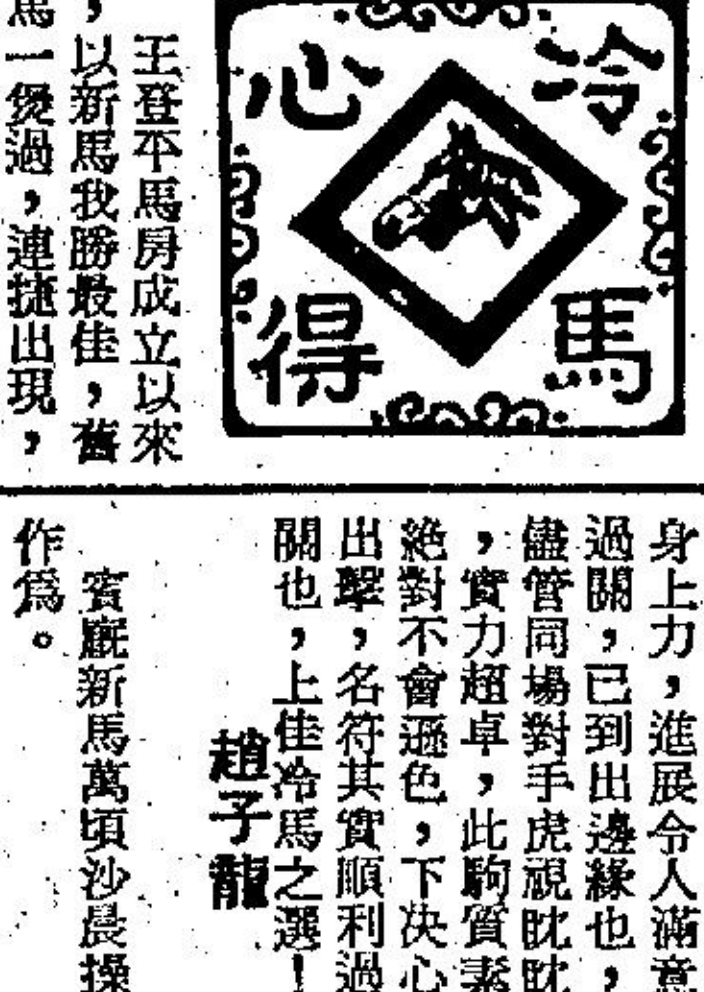 冷馬心得
王登平馬房成立以來
，以新馬我勝最佳，舊
馬一煲過，連捷出現，
身上力，進展令人滿意
過關，已到出邊緣也，
儘管同場對手虎視眈眈
，實力超卓，此駒質素
絕對不會遜色，下決心
出擊，名符其實順利過
關也，上佳冷馬之選！
趙子龍
賓廐新馬萬頃沙晨操
作爲。